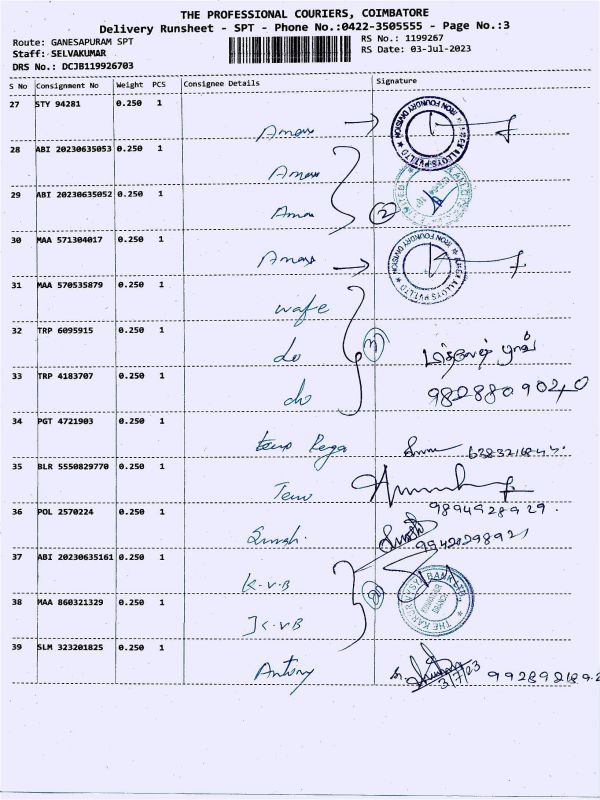 THE PROFESSIONAL COURIERS, COIMBATORE
Delivery Runsheet - SPT - Phone No.:0422-3505555 - Page No.:3
Route: GANESAPURAM SPT
RS No.: 1199267
Staff: SELVAKUMAR
RS Date: 03-Jul-2023
DRS No.: DCJB119926703
S No Consignment No Weight PCS Consignee Details Signature
27 STY 94281 0.250 1
28 ABI 20230635053 0.250 1
29 ABI 20230635052 0.250 1
2
30 MAA 571304017 0.250 1
IRON FOUNDRY DIVISION
ALLOYS PVT LTD
31 MAA 570535879 0.250 1
wafe
32 TRP 6095915 0.250 1
do
33 TRP 4183707 0.250 1
do
34 PGT 4721903 0.250 1
35 BLR 5550829770 0.250 1
9894928929.
36 POL 2570224 0.250 1
99420298921
37 ABI 20230635161 0.250 1
K.V.B
38 MAA 860321329 0.250 1
K.V.B
THE KARUR VYSYA BANK LTD.
39 SLM 323201825 0.250 1
Antony
3/7/23